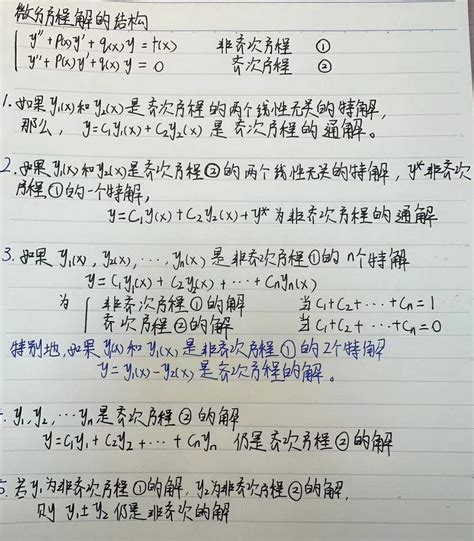 微分方程解的结构
y" + P(x)y' + q(x)y = f(x) 非齐次方程 ①
y" + P(x)y' + q(x)y = 0 齐次方程 ②
1. 如果 y₁(x) 和 y₂(x) 是齐次方程的两个线性无关的特解,
那么, y=C₁y₁(x)+C₂y₂(x) 是齐次方程的通解。
2. 如果 y₁(x) 和 y₂(x) 是齐次方程②的两个线性无关的特解, y* 非齐次
方程①的一个特解,
y=C₁y(x)+C₂y₂(x)+y* 为非齐次方程的通解
3. 如果 y₁(x), y₂(x), ..., yₙ(x) 是非齐次方程①的 n个特解
y=C₁y₁(x)+C₂y₂(x)+ ... +Cₙyₙ(x)
为 非齐次方程①的解 当C₁+C₂+ ... +Cₙ=1
齐次方程②的解 当C₁+C₂+ ... +Cₙ=0
特别地,如果 y(x) 和 y₁(x) 是非齐次方程①的2个特解
y=y₁(x)-y₂(x) 是齐次方程的解。
y₁, y₂, ... yₙ 是齐次方程②的解
y=C₁y₁+C₂y₂+ ... +Cₙyₙ 仍是齐次方程②的解
5. 若y₁为非齐次方程①的解, y₂为非齐次方程②的解,
则 y₁±y₂ 仍是非齐次的解